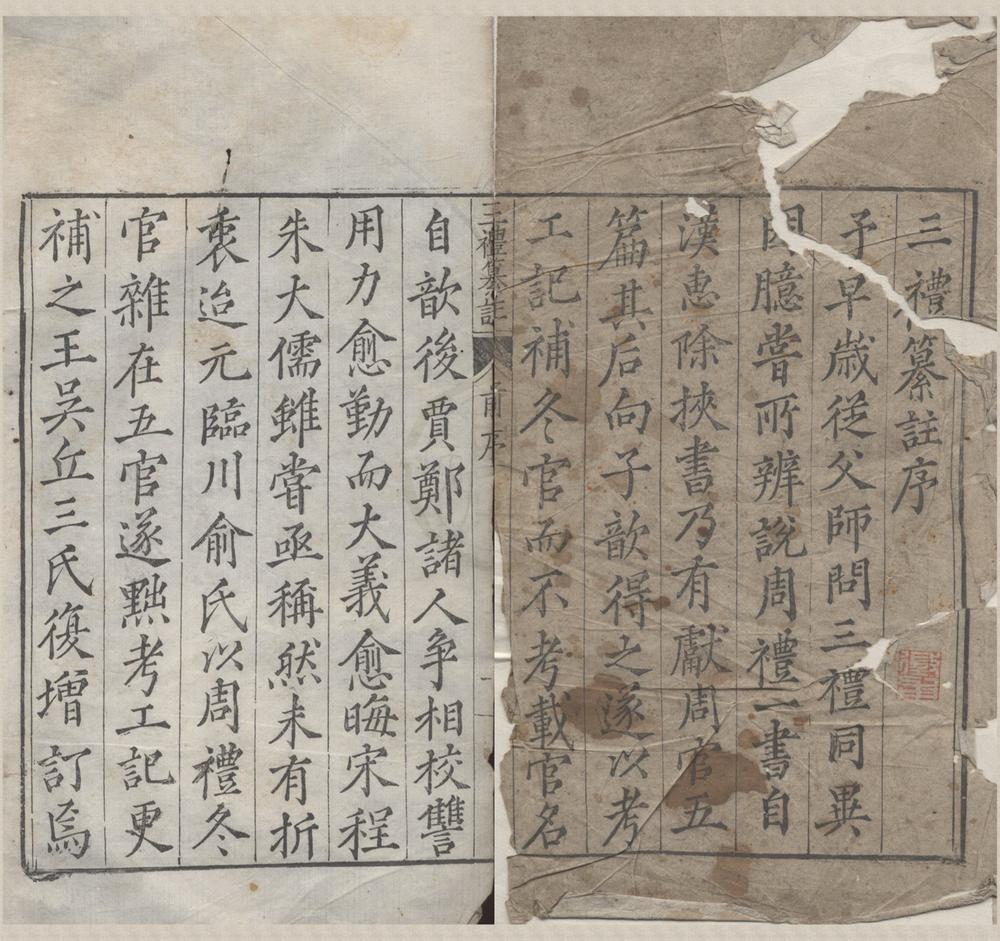 三禮纂註序
予早歲從父師問三禮同異
因臆嘗所辨說周禮一書自
漢惠除挾書乃有獻周官五
篇其后向子歆得之遂以考
工記補冬官而不考載官名
三禮纂註
前序
自歆後賈鄭諸人争相校讐
用力愈勤而大義愈晦宋程
朱大儒雖嘗亟稱然未有折
衷迨元臨川俞氏以周禮冬
官雜在五官遂黜考工記更
補之王吳丘三氏復增訂焉